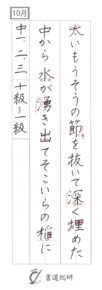 10月
太いもうそうの節を抜いて深く埋めた
中から水が湧き出てそこいらの稲に
中一、二、三 十級〜一級
書道総研